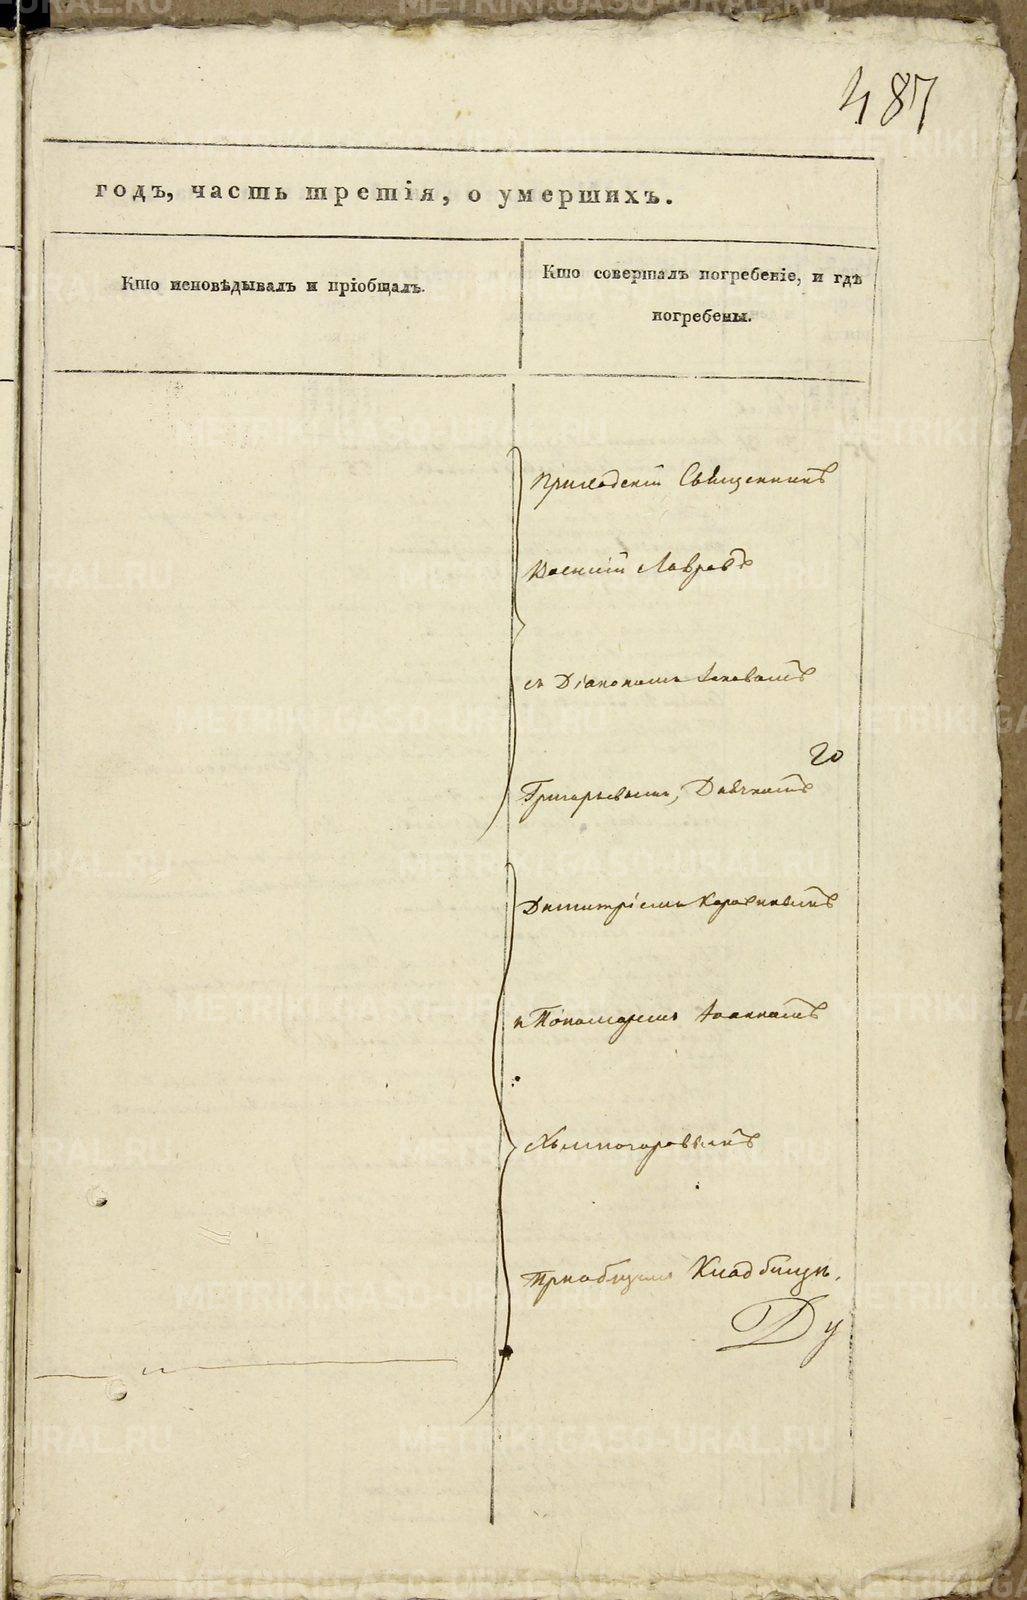 487
годъ, часть третія, о умершихъ.
Кто исповѣдывалъ и пріобщалъ.
Кто совершалъ погребеніе, и гдѣ
погребены.
Приходскій Священникъ
Василій Лавровъ
съ Діакономъ Іаковомъ
20
Григорьевымъ, Дьячкомъ
Димитріемъ Коровинымъ
и Пономаремъ Іоанномъ
Хелмогоровымъ
На общемъ Кладбищѣ.
METRIKI.GASO-URAL.RU